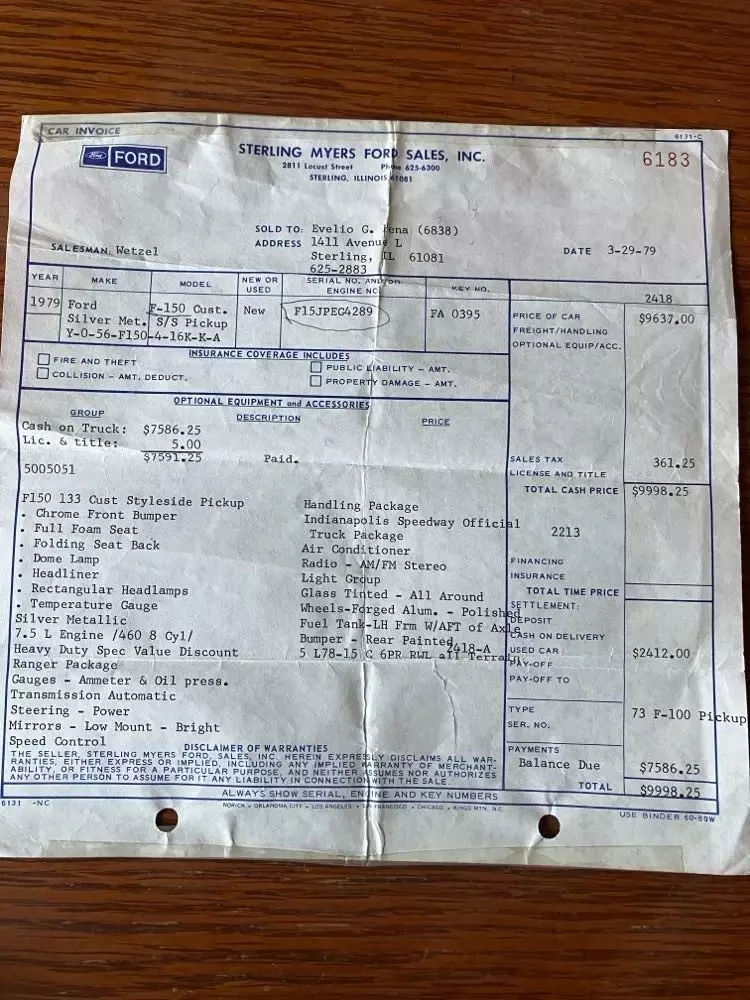 CAR INVOICE
6131-C
Ford FORD
STERLING MYERS FORD SALES, INC.
2811 Locust Street Phone 625-6300
STERLING, ILLINOIS 61081
6183
SOLD TO: Evelio G. ena (6838)
ADDRESS 1411 Avenue L
Sterling, IL 61081
625-2883
SALESMAN: Wetzel
DATE 3-29-79
YEAR MAKE MODEL NEW OR USED SERIAL NO. AND/OR ENGINE NO. KEY NO.
2418
1979 Ford F-150 Cust. New F15JPEG4289 FA 0395
Silver Met. S/S Pickup
Y-0-56-F150-4-16K-K-A
PRICE OF CAR $9637.00
FREIGHT/HANDLING
OPTIONAL EQUIP/ACC.
INSURANCE COVERAGE INCLUDES
FIRE AND THEFT PUBLIC LIABILITY - AMT.
COLLISION - AMT. DEDUCT. PROPERTY DAMAGE - AMT.
OPTIONAL EQUIPMENT and ACCESSORIES
GROUP DESCRIPTION PRICE
Cash on Truck: $7586.25
Lic. & title: 5.00
$7591.25 Paid.
5005051
SALES TAX 361.25
LICENSE AND TITLE
TOTAL CASH PRICE $9998.25
2213
FINANCING
INSURANCE
TOTAL TIME PRICE
SETTLEMENT:
DEPOSIT
CASH ON DELIVERY
USED CAR $2412.00
2418-A
PAY-OFF
PAY-OFF TO
TYPE 73 F-100 Pickup
SER. NO.
PAYMENTS
Balance Due $7586.25
TOTAL $9998.25
F150 133 Cust Styleside Pickup
. Chrome Front Bumper
. Full Foam Seat
. Folding Seat Back
. Dome Lamp
. Headliner
. Rectangular Headlamps
. Temperature Gauge
Silver Metallic
7.5 L Engine /460 8 Cyl/
Heavy Duty Spec Value Discount
Ranger Package
Gauges - Ammeter & Oil press.
Transmission Automatic
Steering - Power
Mirrors - Low Mount - Bright
Speed Control
Handling Package
Indianapolis Speedway Official
Truck Package
Air Conditioner
Radio - AM/FM Stereo
Light Group
Glass Tinted - All Around
Wheels-Forged Alum. - Polished
Fuel Tank-LH Frm W/AFT of Axle
Bumper - Rear Painted
5 L78-15 C 6PR RWL all Terrain
DISCLAIMER OF WARRANTIES
THE SELLER, STERLING MYERS FORD, SALES, INC. HEREIN EXPRESSLY DISCLAIMS ALL WAR-
RANTIES, EITHER EXPRESS OR IMPLIED, INCLUDING ANY IMPLIED WARRANTY OF MERCHANT-
ABILITY, OR FITNESS FOR A PARTICULAR PURPOSE, AND NEITHER ASSUMES NOR AUTHORIZES
ANY OTHER PERSON TO ASSUME FOR IT ANY LIABILITY IN CONNECTION WITH THE SALE.
ALWAYS SHOW SERIAL, ENGINE AND KEY NUMBERS
6131 -NC
NORICK • OKLAHOMA CITY • LOS ANGELES • SAN FRANCISCO • CHICAGO • KINGS MTN. N.C.
USE BINDER 60-89W